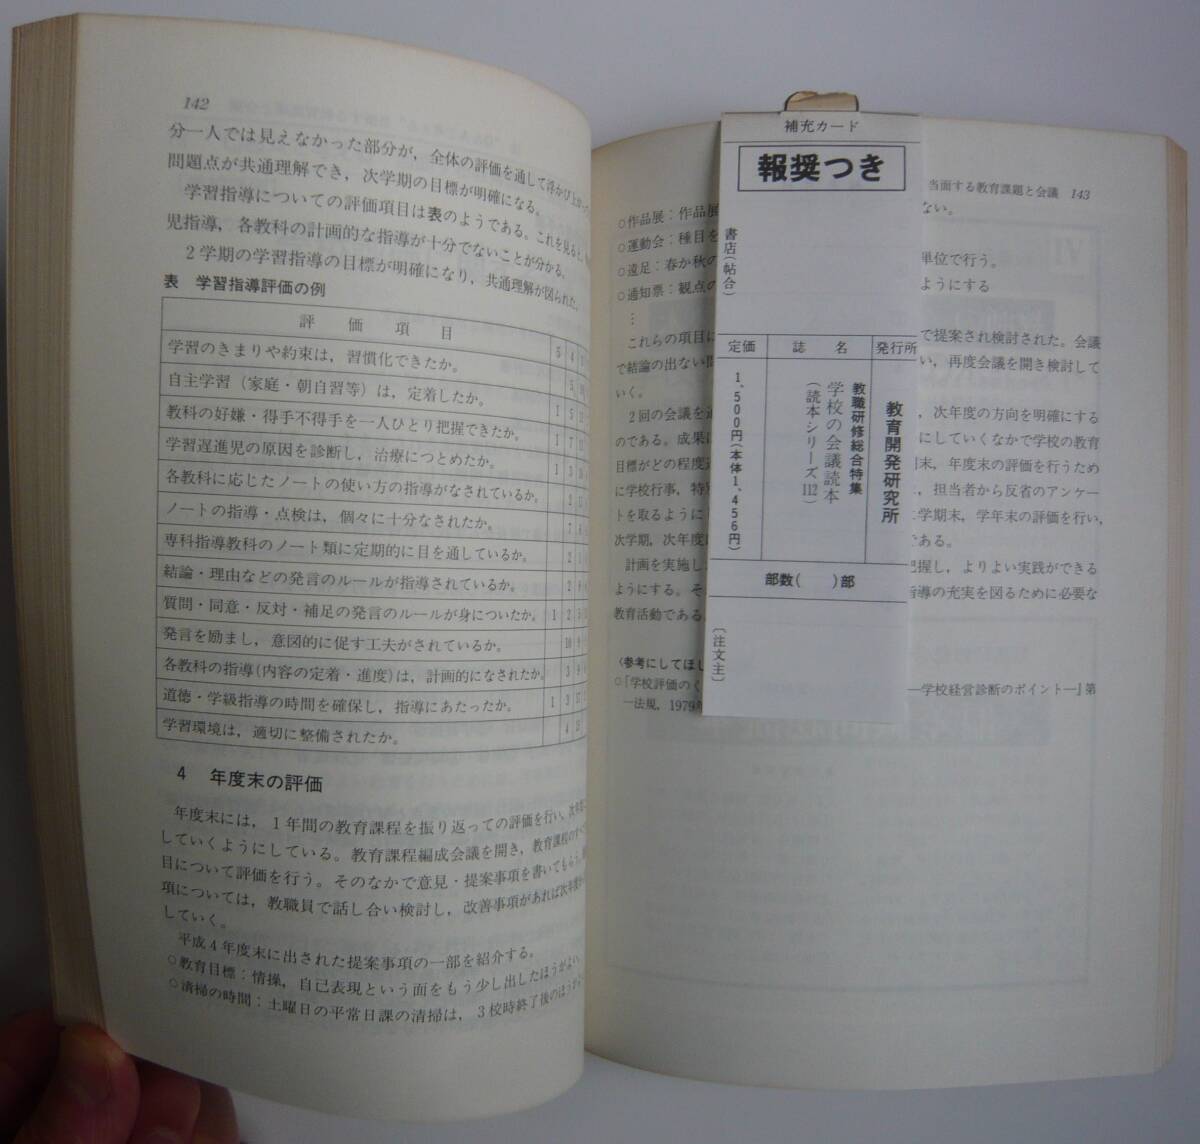 142
分一人では見えなかった部分が，全体の評価を通して浮かび上が
問題点が共通理解でき，次学期の目標が明確になる。
学習指導についての評価項目は表のようである。これを見ると，
児指導，各教科の計画的な指導が十分でないことが分かる。
2学期の学習指導の目標が明確になり，共通理解が図られた。
表　学習指導評価の例
評　価　項　目　5　4
学習のきまりや約束は，習慣化できたか。
自主学習（家庭・朝自習等）は，定着したか。　5
教科の好嫌・得手不得手を一人ひとり把握できたか。　1　5
学習遅進児の原因を診断し，治療につとめたか。　1　7
各教科に応じたノートの使い方の指導がなされているか。　1　3
ノートの指導・点検は，個々に十分なされたか。
専科指導教科のノート類に定期的に目を通しているか。
結論・理由などの発言のルールが指導されているか。
質問・同意・反対・補足の発言のルールが身についたか。　1　2
発言を励まし，意図的に促す工夫がされているか。　10
各教科の指導（内容の定着・進度）は，計画的になされたか。　3
道徳・学級指導の時間を確保し，指導にあたったか。　1　3
学習環境は，適切に整備されたか。　4
4　年度末の評価
年度末には，1年間の教育課程を振り返っての評価を行い，次年度
していくようにしている。教育課程編成会議を開き，教育課程のすべ
目について評価を行う。そのなかで意見・提案事項を書いてもらう。
項については，教職員で話し合い検討し，改善事項があれば次年度
していく。
平成4年度末に出された提案事項の一部を紹介する。
○教育目標：情操，自己表現という面をもう少し出したほうがよい。
○清掃の時間：土曜日の平常日課の清掃は，3校時終了後のほうが
当面する教育課題と会議　143
○作品展：作品展
ない。
○運動会：種目を
○遠足：春か秋の
単位で行う。
○通知票：観点の
ようにする
…
これらの項目に
で提案され検討された。会議
で結論の出ない問
い，再度会議を開き検討して
いく。
2回の会議を通
，次年度の方向を明確にする
のである。成果に
にしていくなかで学校の教育
目標がどの程度達
末，年度末の評価を行うため
に学校行事，特別
，担当者から反省のアンケー
トを取るように
学期末，学年末の評価を行い，
次学期，次年度に
である。
計画を実施し
把握し，よりよい実践ができる
ようにする。そ
指導の充実を図るために必要な
教育活動である。
〈参考にしてほし
○『学校評価のく
―学校経営診断のポイント―』第
一法規，1979年
補充カード
報奨つき
書店（帖合）
定価
誌　名
発行所
教育開発研究所
教職研修総合特集
学校の会議読本
（読本シリーズ112）
1,500円（本体1,456円）
部数（　）部
〔注文主〕